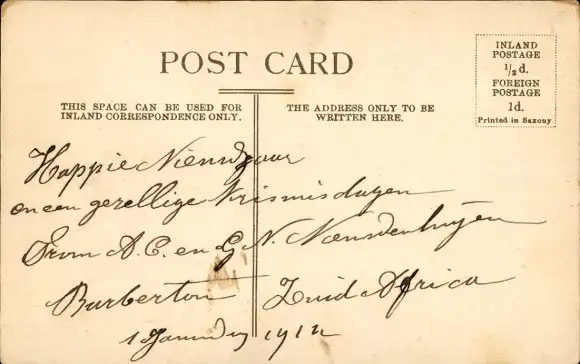 POST CARD
INLAND
POSTAGE
1/2 d.
FOREIGN
POSTAGE
1d.
Printed in Saxony
THIS SPACE CAN BE USED FOR
INLAND CORRESPONDENCE ONLY.
THE ADDRESS ONLY TO BE
WRITTEN HERE.
Happie Nieuwjaar
en een gezellige Krismisdagen
From A. C. en G. N.
Barberton Zuid Africa
1 1912